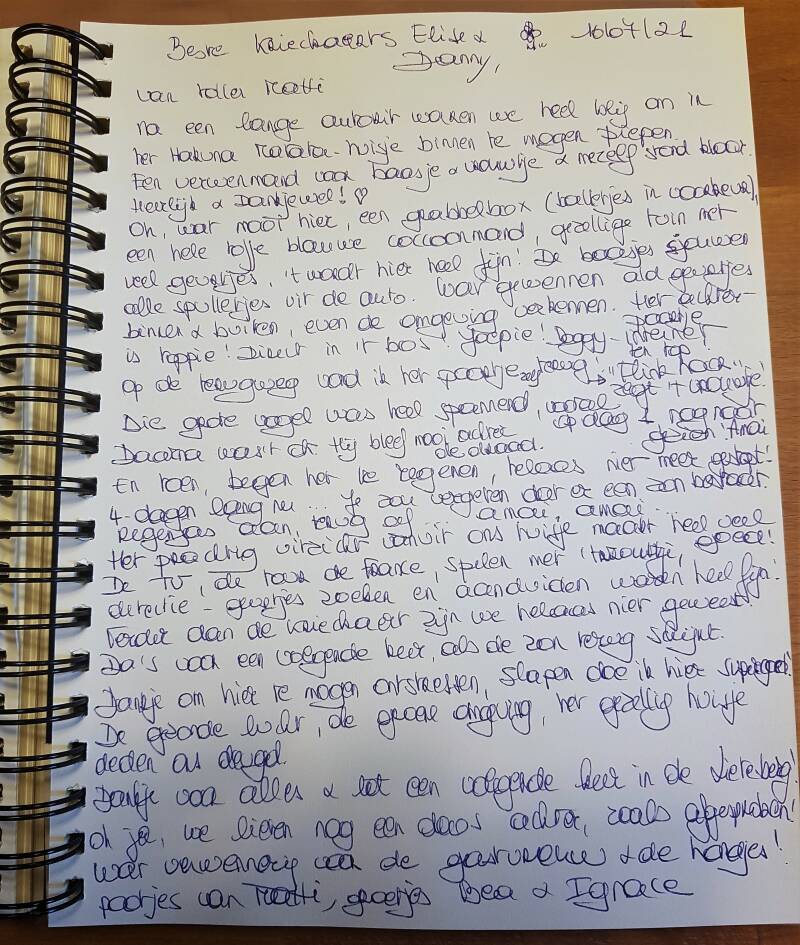 Beste Kriechaaers Elise & 16/07/21
Danny,
van roller Matti
na een lange autorit waren we heel blij om in
het Hakuna Matata-huisje binnen te mogen piepen.
Een verwenmand voor baasje & vrouwtje & mezelf stond klaar.
Heerlijk & Dankjewel! ♡
Oh, wat mooi hier, een grabbelbox (balletjes in voorkeur),
een hele toffe blauwe cocoonmand, gezellige tuin met
veel geurtjes, 't wordt hier heel fijn! De baasjes sjouwen
alle spulletjes uit de auto. Wat gewennen ald geurtjes
binnen & buiten, even de omgeving verkennen. Het achter-
poortje
is toppie! Direct in 't bos! Joepie! Doggy-
ten top
op de terugweg vond ik het poortje zelf terug "Flink hoor"
zegt 't vrouwtje!
Die grote vogel was heel spannend, vooral op dag 1 nog naar
Daarna was't ok. Hij bleef mooi achter de draad. gezien! Amai
En toen, begon het te regenen, helaas niet meer gestopt!
4-dagen lang nu... Je zou vergeten dat er een zon bestaat.
Regenjas aan, terug af amai, amai
Het prachtig uitzicht vanuit ons huisje maakt heel veel goed!
De TV, de tour de france, spelen met 't vrouwtje,
detectie-geurtjes zoeken en aanduiden waren heel fijn!
Verder dan de Kriechaert zijn we helaas niet geweest!
Da's voor een volgende keer, als de zon terug schijnt.
Dankje om hier te mogen ontstressen, slapen doe ik hier supergoed!
De gezonde lucht, de groene omgeving, het gezellig huisje
deden ons deugd.
Dankje voor alles & tot een volgende keer in de Lieresberg!
Oh ja, we lieten nog een doos achter, zoals afgesproken!
Wat verwennerij van de gastvrouw & de hondjes!
pootjes van Matti, groetjes Bea & Ignace